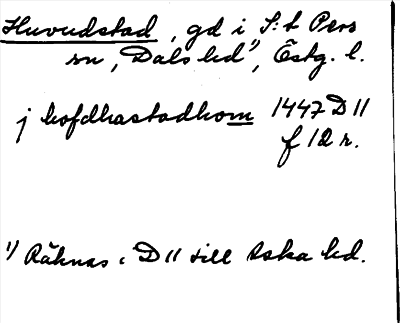 Huvudstad, gd i S:t Pers
sn, Dals hd¹⁾, Östg. l.
j hofdhastadhom 1447 D 11
f 12 r.
1) Räknas i D 11 till Aska hd.